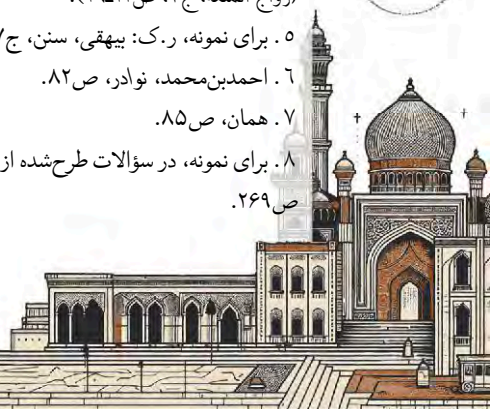 ۵. برای نمونه، ر.ک: بیهقی، سنن، ج۷
۶. احمدبن‌محمد، نوادر، ص۸۲.
۷. همان، ص۸۵.
۸. برای نمونه، در سؤالات طرح‌شده از
ص۲۶۹.